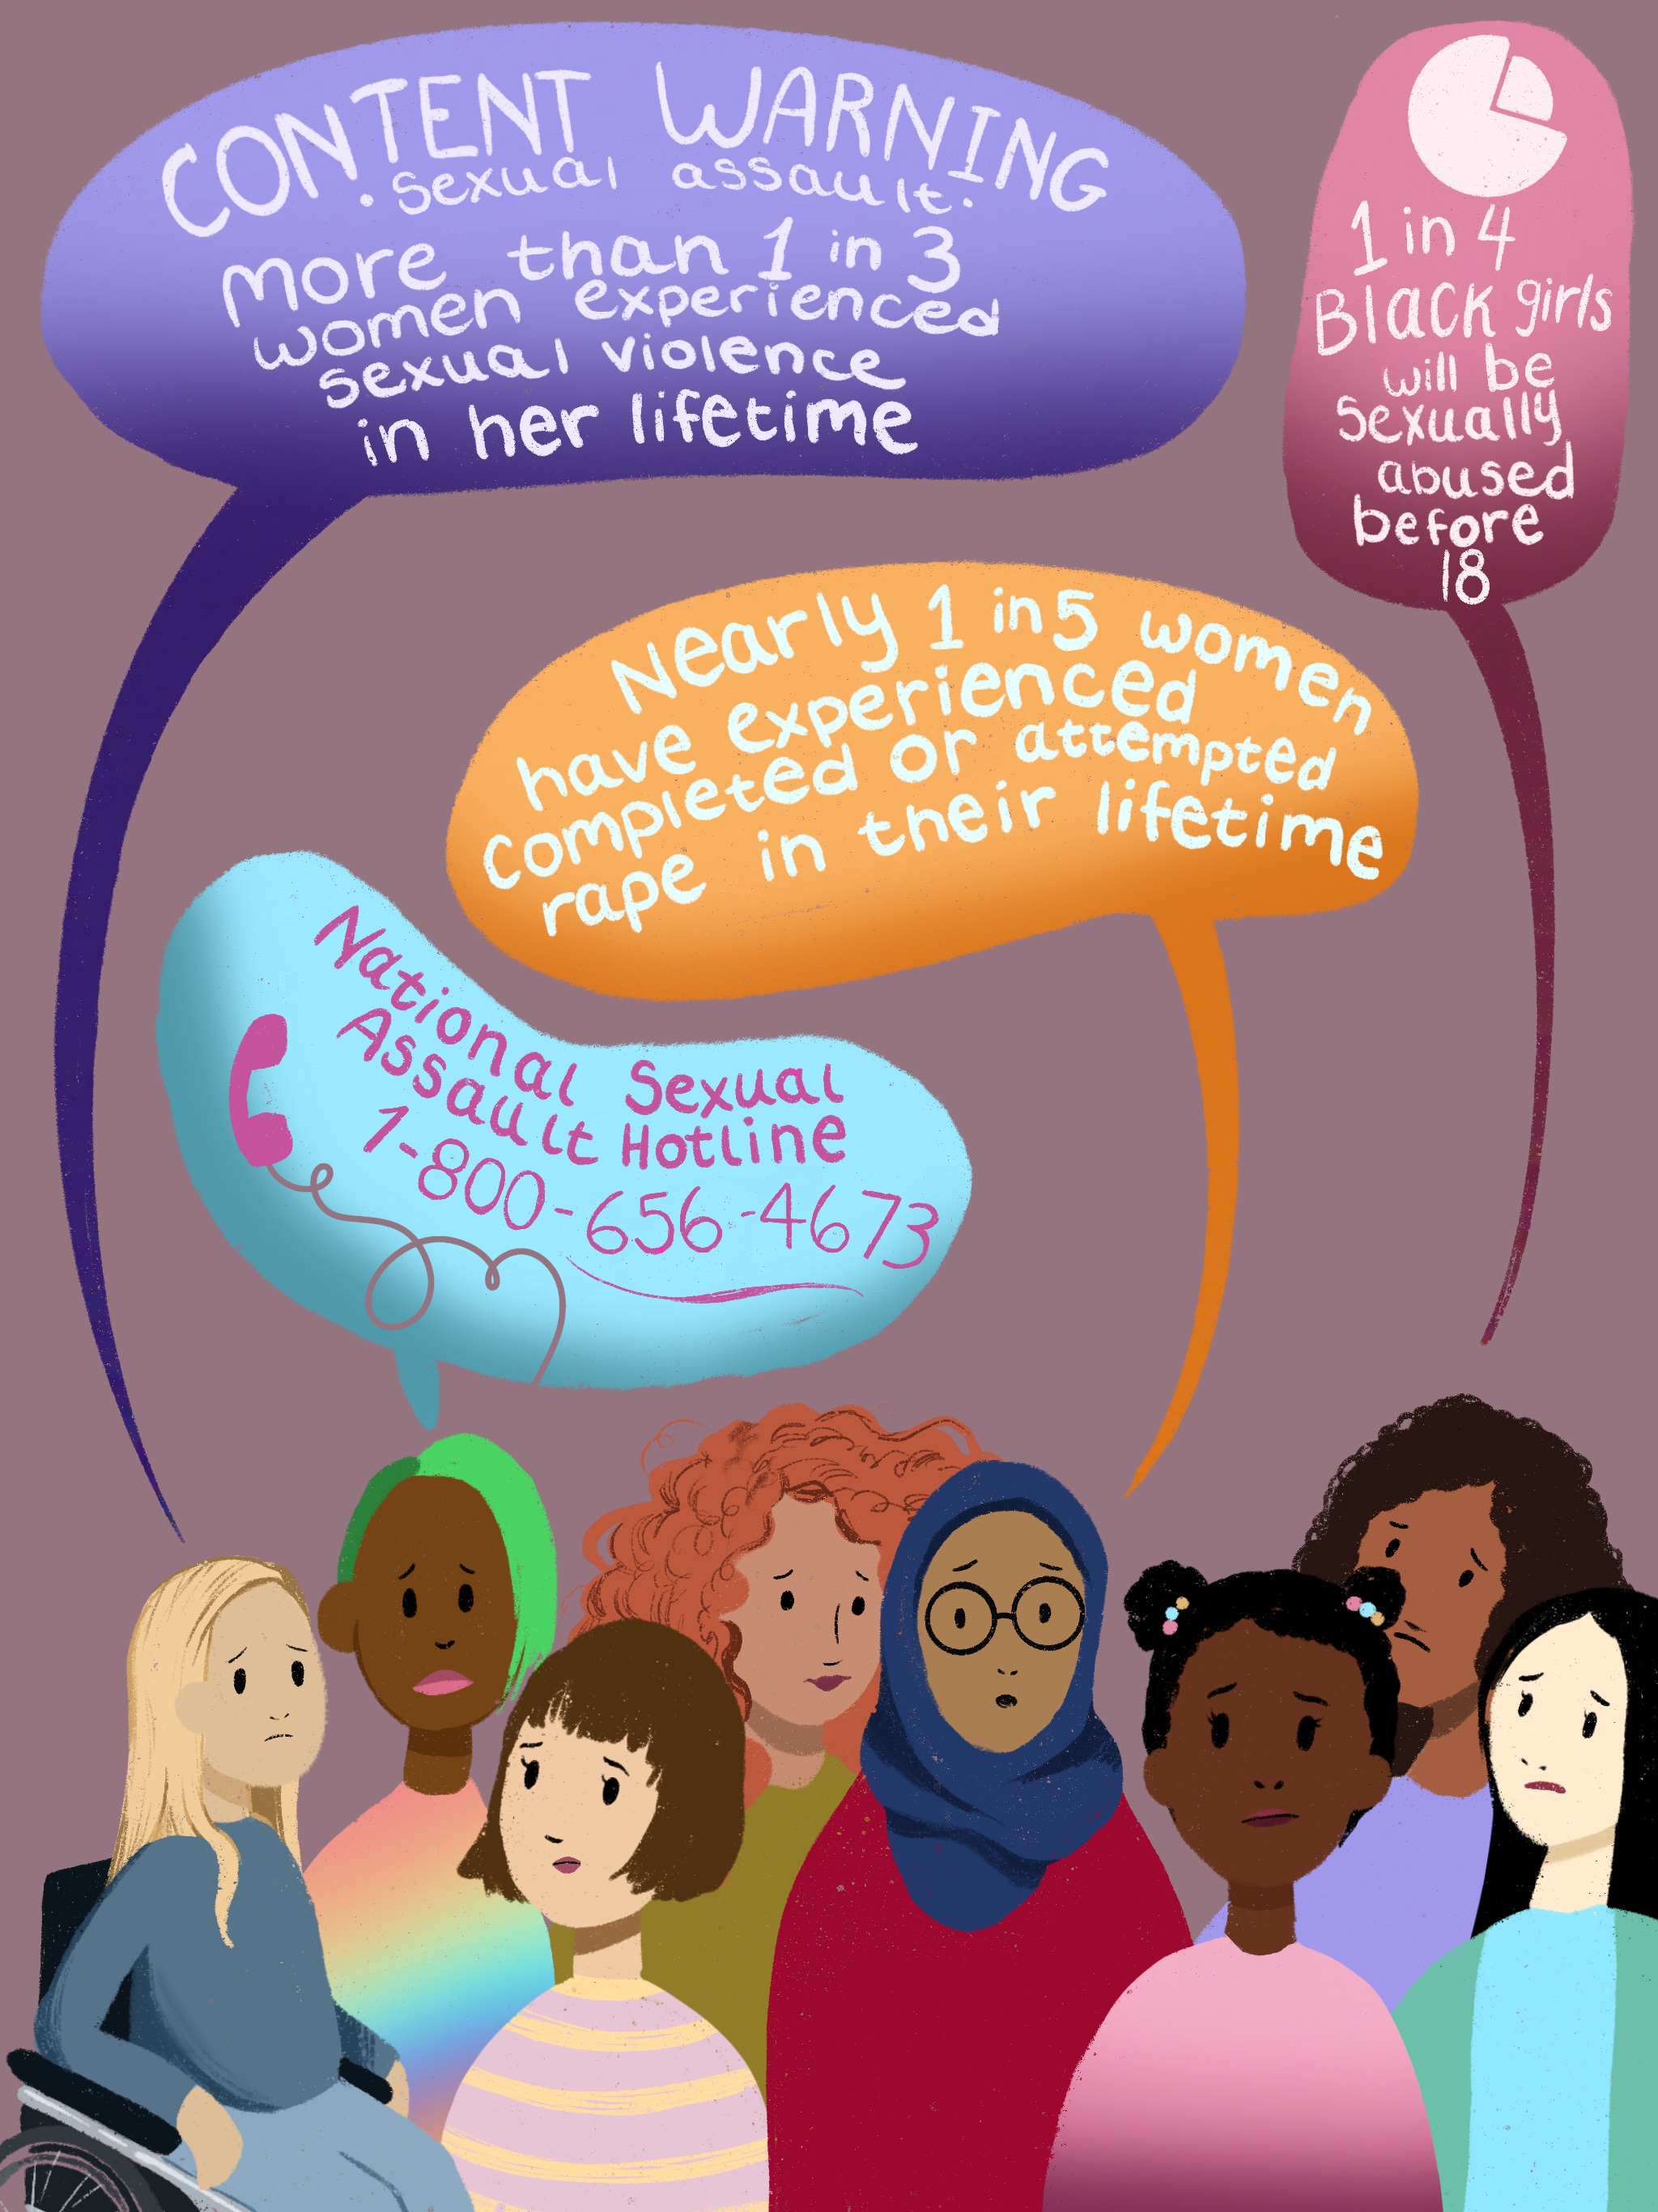 CONTENT WARNING
. sexual assault.
more than 1 in 3
women experienced
sexual violence
in her lifetime
1 in 4
Black girls
will be
Sexually
abused
before
18
Nearly 1 in 5 women
have experienced
completed or attempted
rape in their lifetime
National Sexual
Assault Hotline
1-800-656-4673